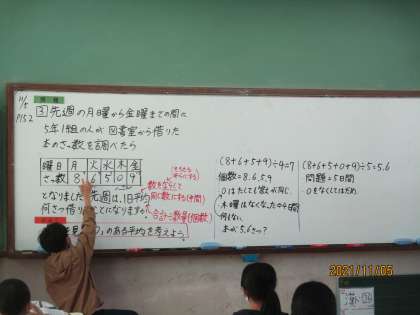 11/5
P152
問題
③先週の月曜から金曜までの間に
5年1組の人が図書室から借りた
本のさっ数を調べたら
曜日 月 火 水 木 金
さっ数 8 6 5 0 9
となりました。先週は、1日平均
何さつ借りたことになりますか。
ある平均を考えよう。
数をならして
同じ数にする(手間)
合計÷数量(個数)
(8+6+5+9)÷4=7
個数=8.6.5.9
0はたしても数が同じ。
(8+6+5+0+9)÷5=5.6
問題=5日間
0をなくしてはだめ。
本が5.6さつ?
2021/11/05